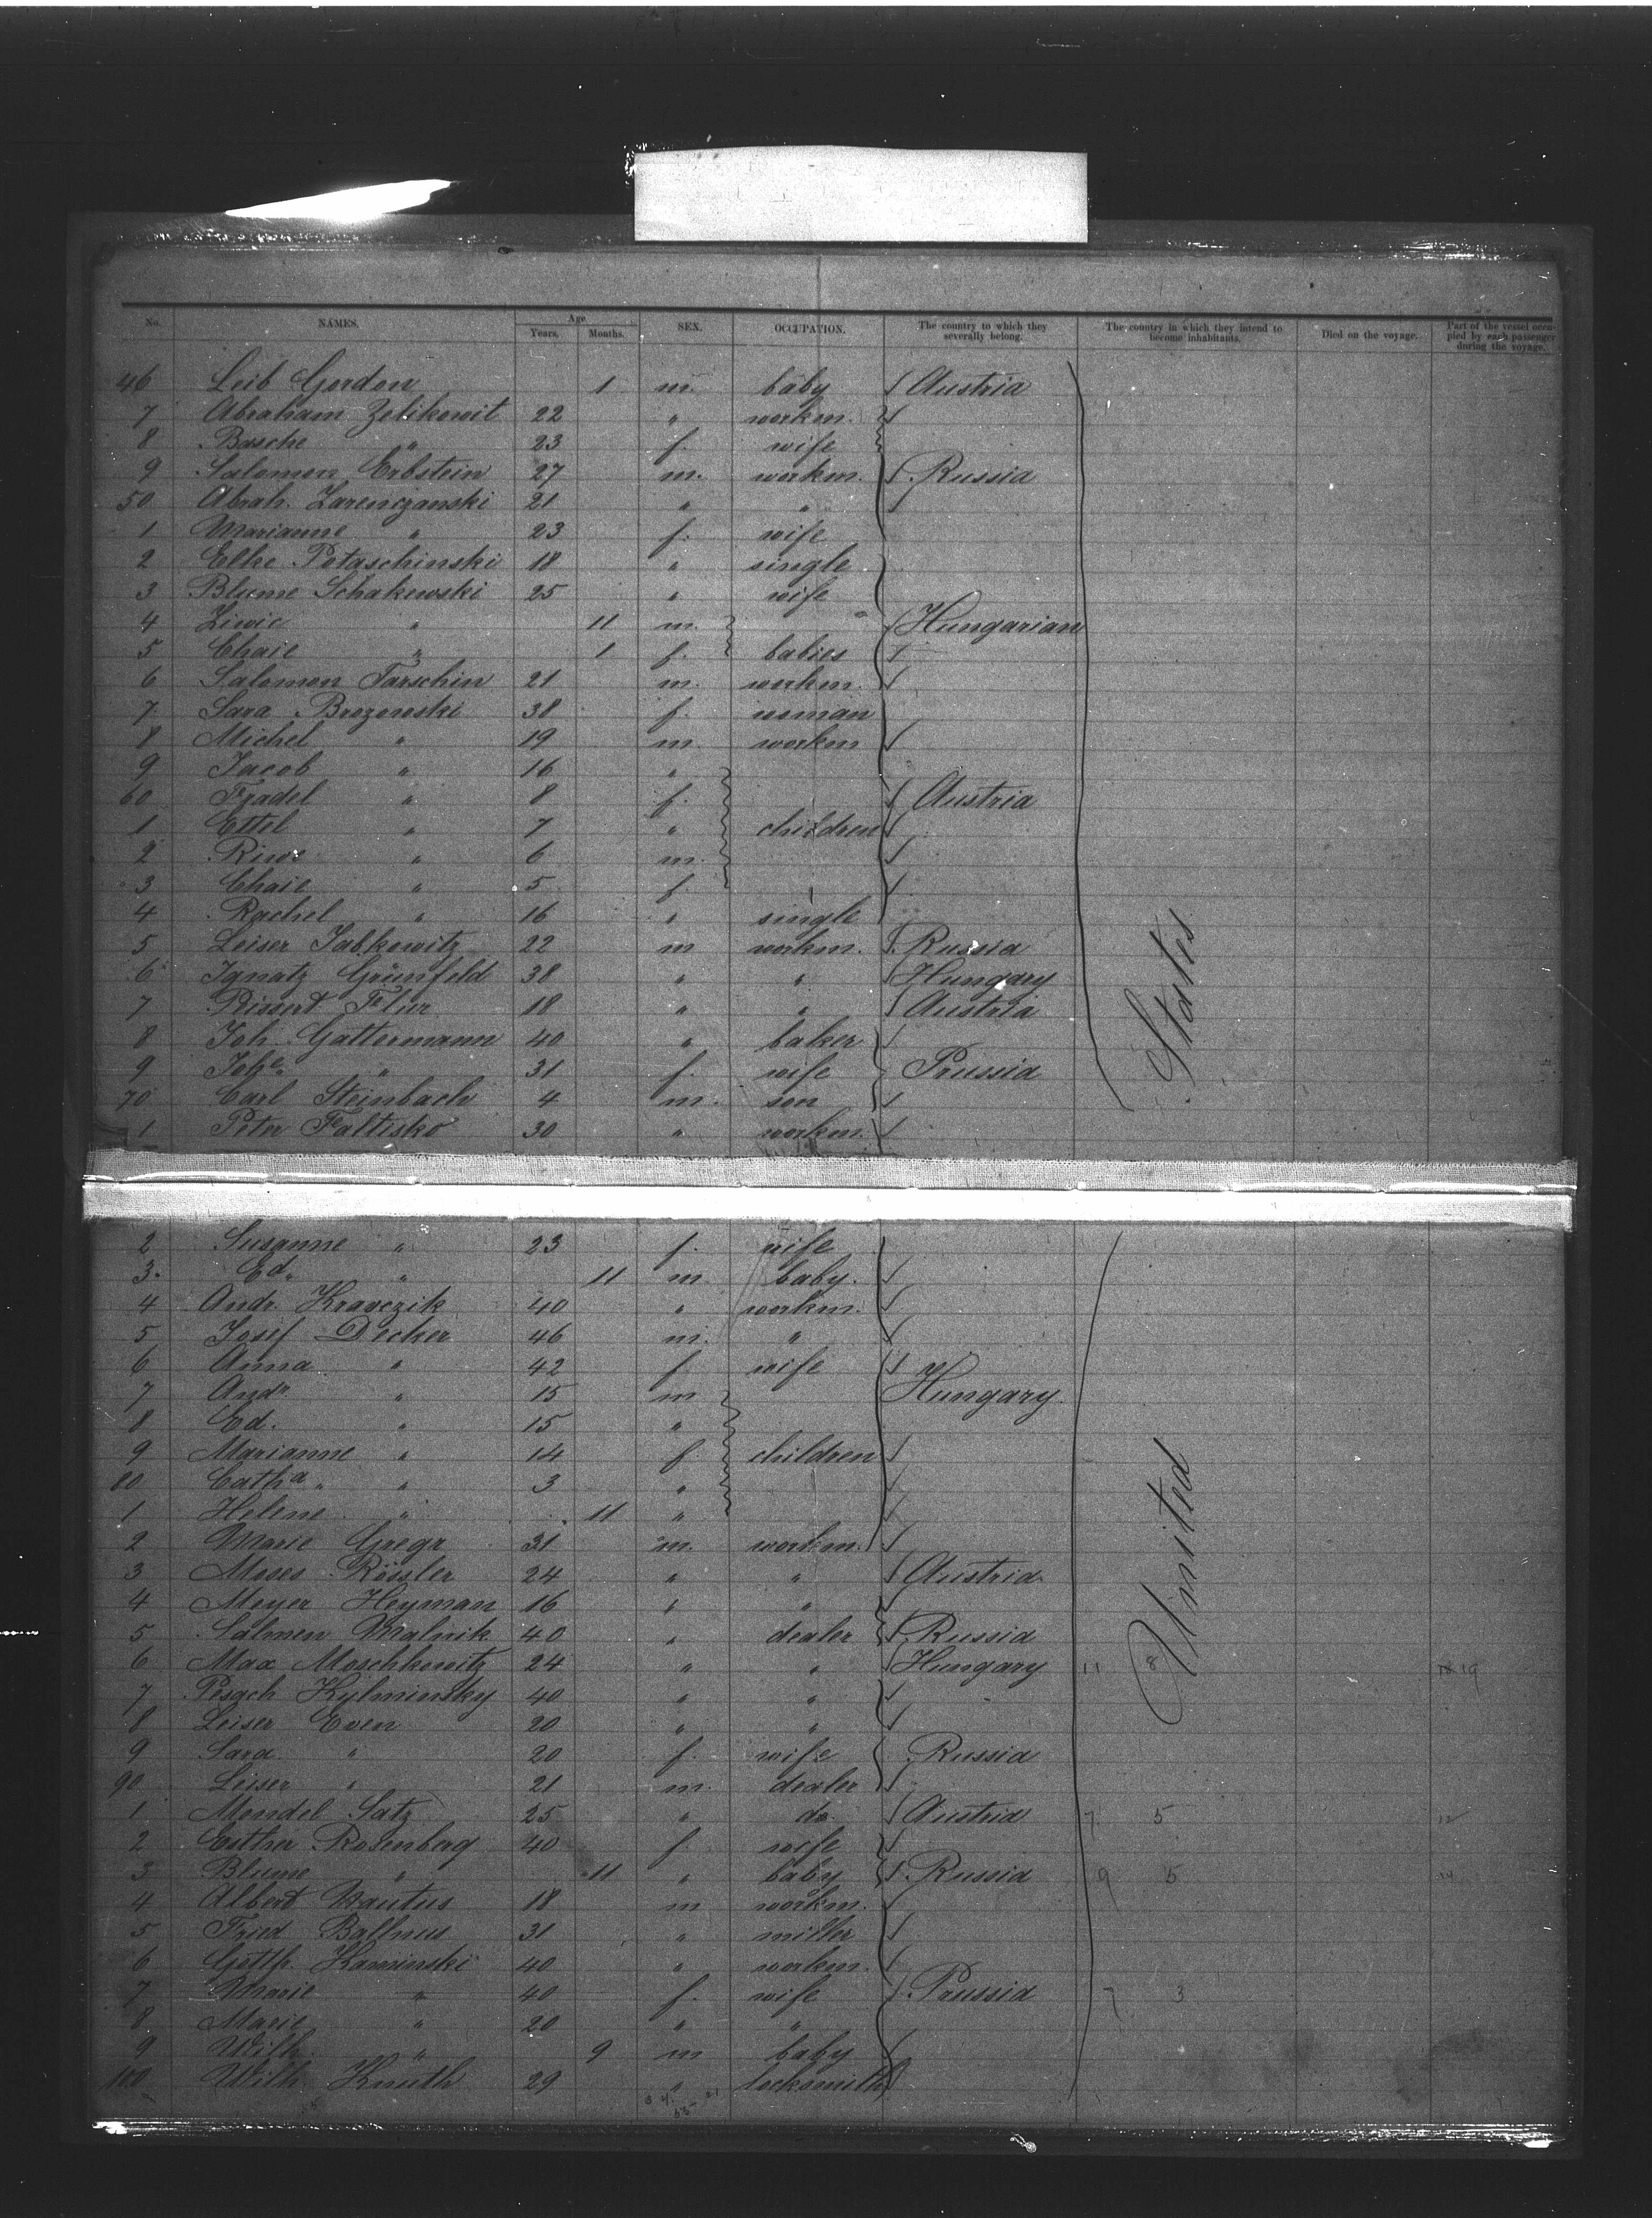 No. NAMES. Age Years. Months. SEX. OCCUPATION. The country to which they severally belong. The country in which they intend to become inhabitants. Died on the voyage. Part of the vessel occupied by each passenger during the voyage.
46 Leib Gordon 1 m. baby Austria
7 Abraham Zelikowit 22 " workm.
8 Basche " 23 f. wife
9 Salomon Erbstein 27 m. workm. Russia
50 Abrah. Zarenczanski 21 " "
1 Marianne " 23 f. wife
2 Elke Potaschinski 18 " single
3 Blume Schakewski 25 " wife
4 Ziwie " 11 m. Hungarian
5 Chaie " 1 f. babies
6 Salomon Tarschin 21 m. workm.
7 Sara Brozowski 38 f. woman
8 Michel " 19 m. workm
9 Jacob " 16 "
60 Fradel " 8 f. Austria
1 Ettel " 7 " children
2 Riwe " 6 m.
3 Chaie " 5 f.
4 Rachel " 16 " single
5 Leiser Jabkowitz 22 m workm. Russia
6 Ignatz Grünfeld 38 " " Hungary
7 Flur 18 " " Austria
8 Joh. Gattermann 40 " baker
9 Johe. " 31 f. wife Prussia
70 Carl Steinbach 4 m. son
1 Peter Faltisko 30 " workm.
2 Susanne " 23 f. wife
3. Ed. " 11 m. baby.
4 Andr. Kravczik 40 " workm.
5 Josef Decker 46 m. "
6 Anna " 42 f. wife
7 Andr " 15 m Hungary.
8 Ed. " 15 "
9 Marianne " 14 f. children
80 Catha. " 3 "
1 Helene " 11 "
2 Marie Gregr 31 m. workm.
3 Moses Rössler 24 " " Austria
4 Meyer Heyman 16 " "
5 Salmen Malnik 40 " dealer Russia
6 Max Moschkowitz 24 " " Hungary 11 8 18 19
7 Pesach Kylmiensky 40 " "
8 Leiser Even 20 " "
9 Sara " 20 f. wife Russia
90 Leiser " 21 m. dealer
1 Mendel Satz 25 " do. Austria 7 5 12
2 Esther Rosenberg 40 f. wife
3 Blume " 11 " baby Russia 9 5 14
4 Albert Wautus 18 m workm.
5 Fried Ballnus 31 " miller
6 Gottfr. Kaminski 40 " workm.
7 Marie " 40 f. wife Prussia 7 3
8 Marie " 20 " "
9 Wilh. " 9 m baby
100 Wilh Knuth 29 " locksmith
United States